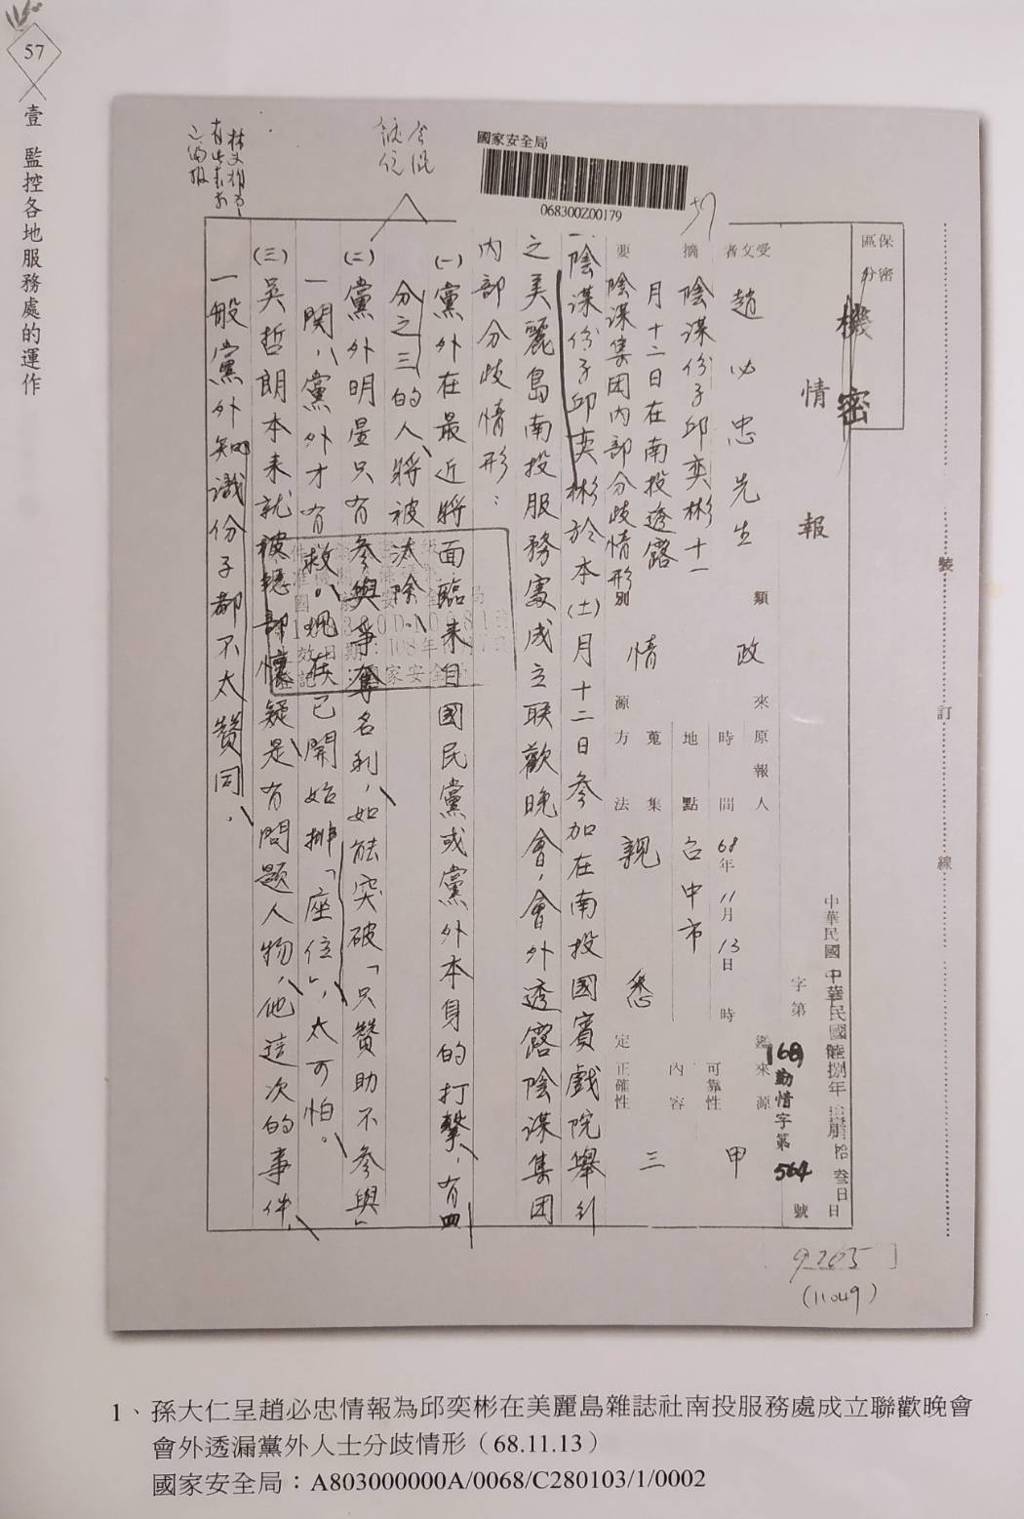 57
壹 監控各地服務處的運作
國家安全局
068300Z00179
57
保密區分
機密
情報
中華民國 中華民國陸捌年 拾 叁日 日
字第
168勤情字第
564
號
受文者 趙必忠先生
類 政
來原報人
時間 68年11月13日 時
地點 台中市
蒐集方法 親悉
來源
可靠性 甲
內容
正確性 三
摘要 陰謀份子邱奕彬十一
月十二日在南投透露
陰謀集团內部分歧情形
別 情
一、陰謀份子邱奕彬於本(十一)月十二日參加在南投國賓戲院舉行
之美麗島南投服務處成立联歡晚會,會外透露陰謀集团
內部分歧情形:
(一)黨外在最近將面臨來自國民黨或黨外本身的打擊,有四
分之三的人將被汰除。
(二)黨外明星只有參與爭奪名利,如能突破「只贊助不參與」
一関,黨外才有救。現在已開始排「座位」,太可怕。
(三)吳哲朗本來就被總部懷疑是有問題人物,他這次的事件,
一般黨外知識份子都不太贊同。
裝
訂
線
9205
(11049)
1、孫大仁呈趙必忠情報為邱奕彬在美麗島雜誌社南投服務處成立聯歡晚會
會外透漏黨外人士分歧情形(68.11.13)
國家安全局:A803000000A/0068/C280103/1/0002